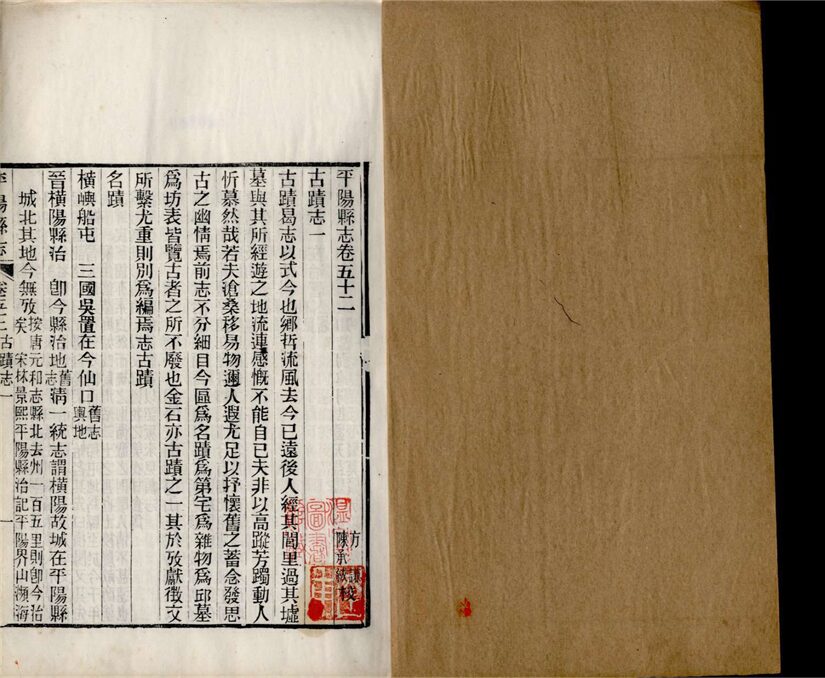 平陽縣志卷五十二
古蹟志一
方
陳承紱 校
古蹟曷志以式今也鄉哲流風去今已遠後人經其閭里過其墟
墓與其所經遊之地流連感慨不能自已夫非以高蹤芳躅動人
忻慕然哉若夫滄桑移易物邇人遐尤足以抒懷舊之蓄念發思
古之幽情焉前志不分細目今區爲名蹟爲第宅爲雜物爲邱墓
爲坊表皆覽古者之所不廢也金石亦古蹟之一其於攷獻徵文
所繫尤重則別爲編焉志古蹟
名蹟
橫嶼船屯 三國吳置在今仙口舊志輿地
晉橫陽縣治 卽今縣治地舊志清一統志謂橫陽故城在平陽縣
城北其地今無攷按唐元和志縣北去州一百五里則卽今治矣 宋林景熙平陽縣治記平陽界山瀕海
平陽縣志 卷五十二 古蹟志一 一